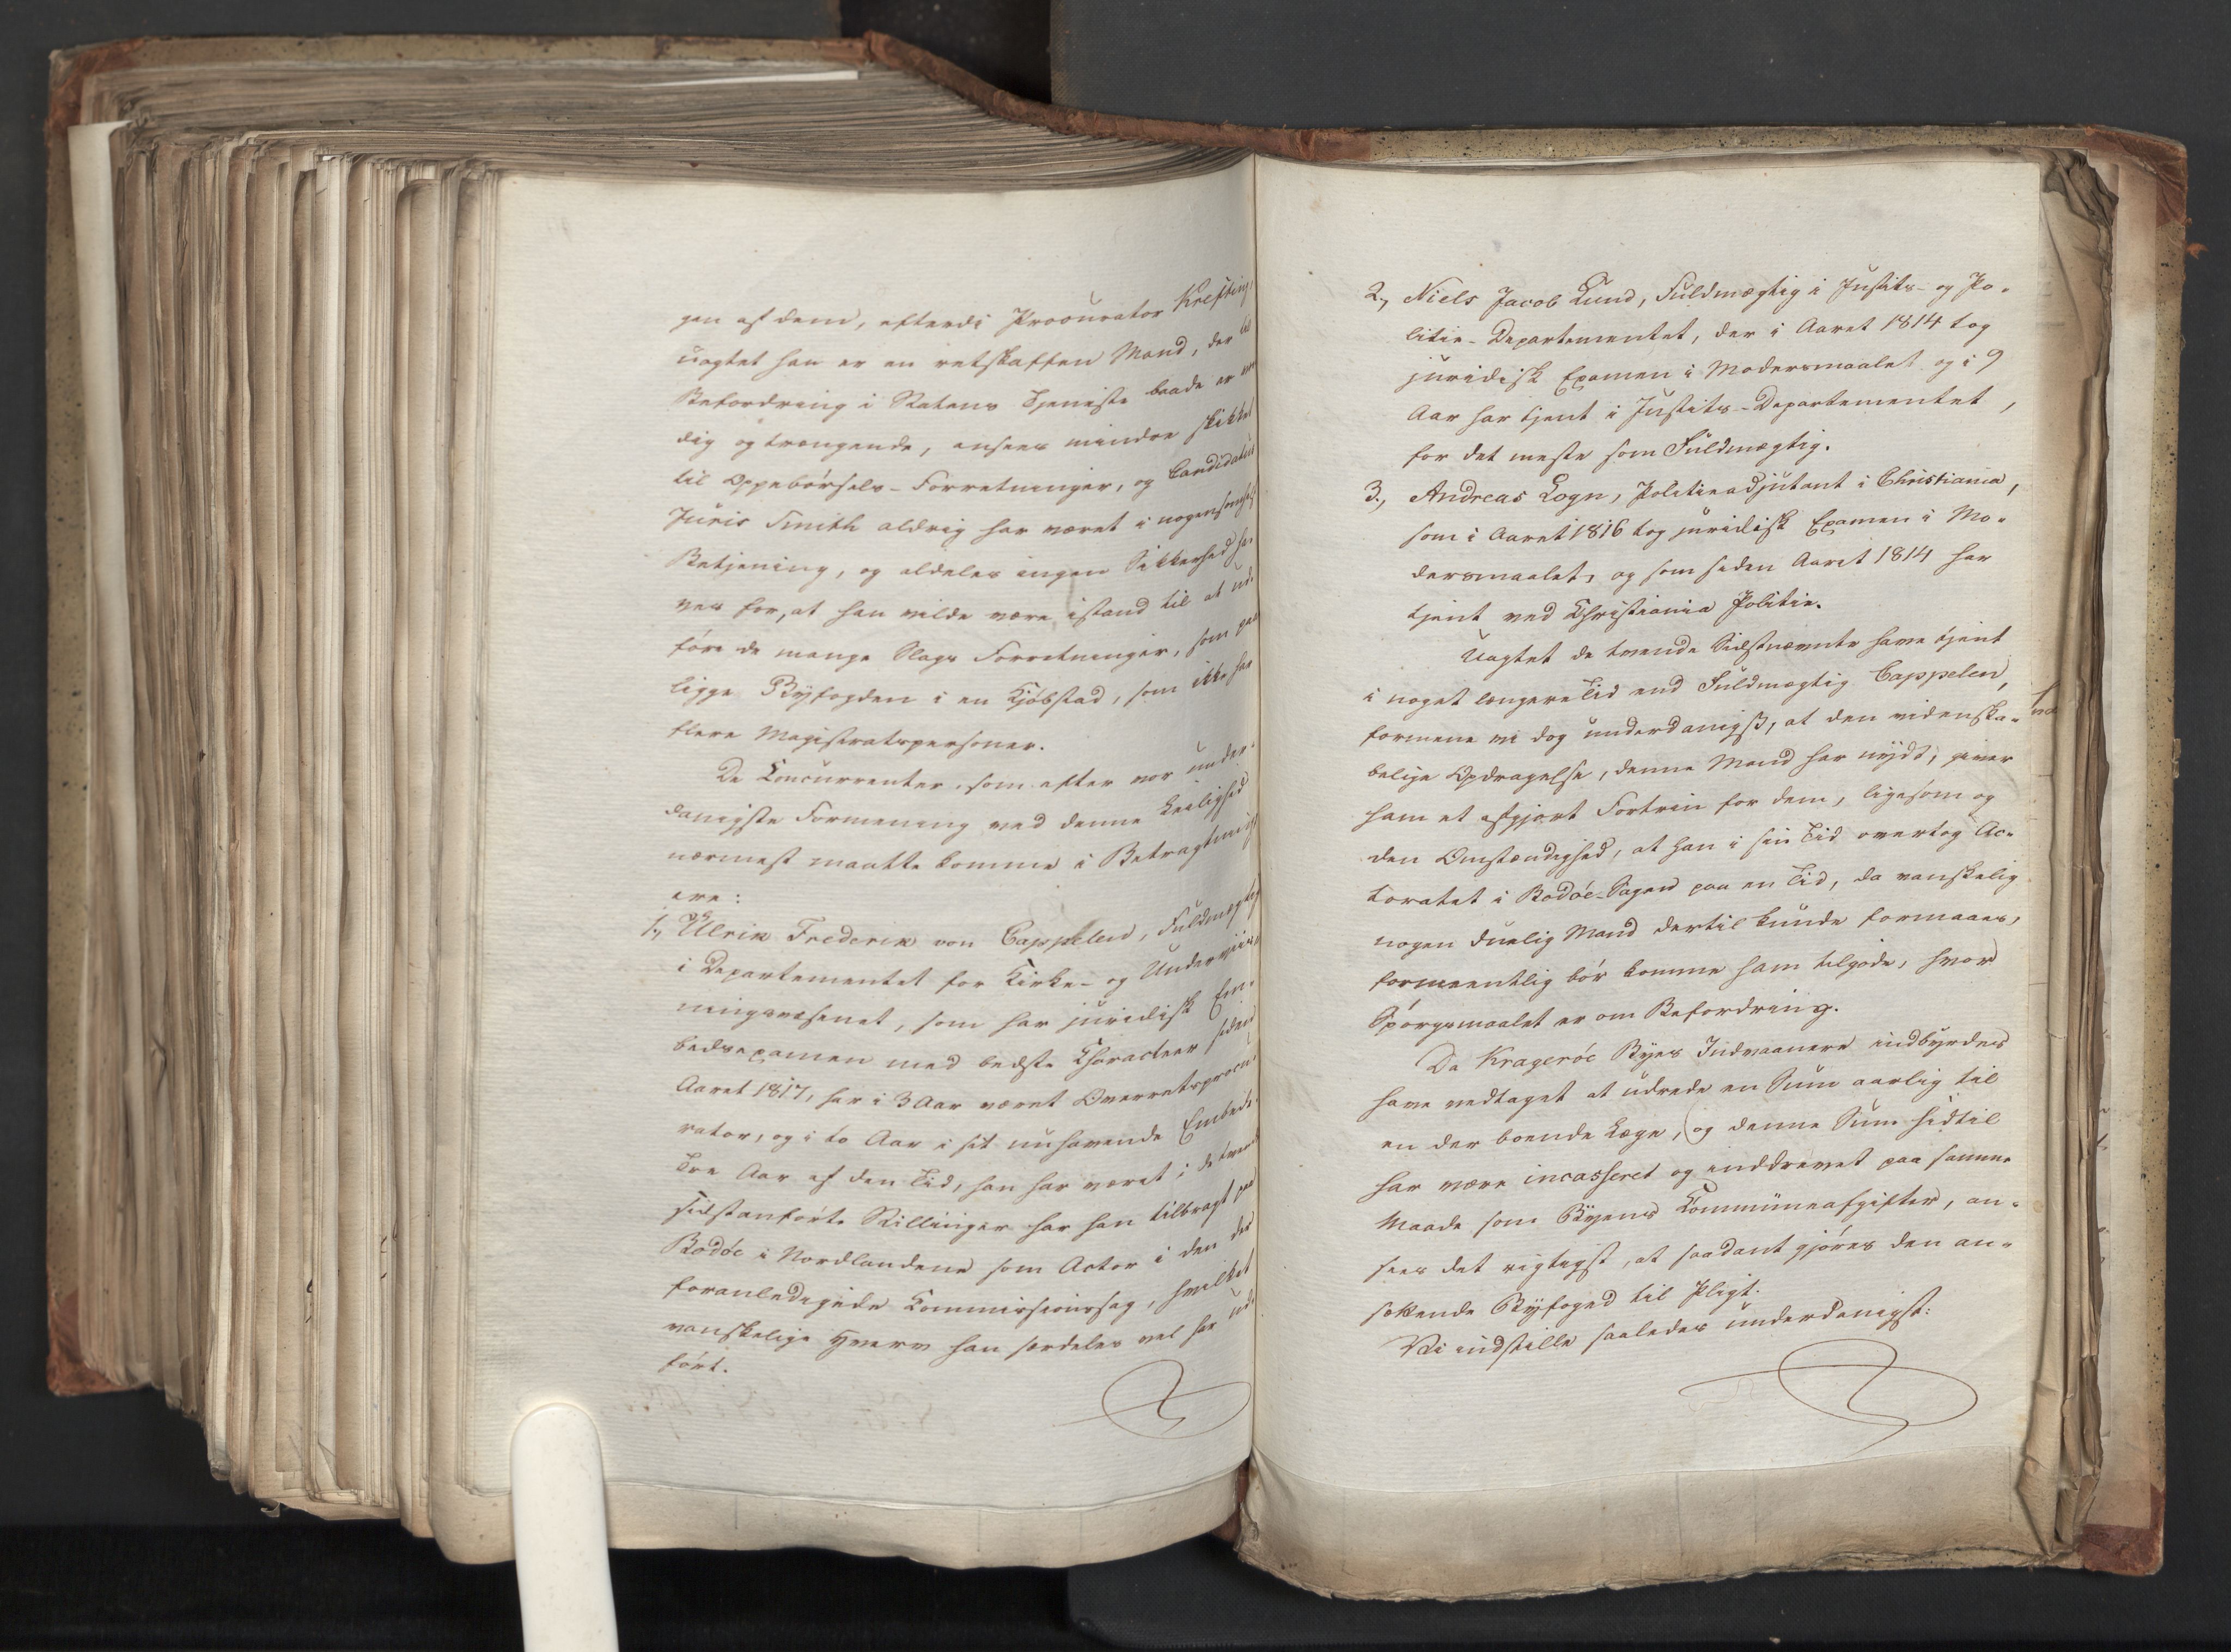 gen af dem, efterdi Procurator Krefting,
uagtet han er en retskaffen Mand, der til
Befordring i Statens Tjeneste baade er vær-
dig og trængende, ansees mindre skikket
til Oppebørsels-Forretninger, og Candidatus
Juris Smith aldrig har været i nogensomhelst
Betjening, og aldeles ingen Sikkerhed ha-
ves for, at han vilde være istand til at ud-
føre de mange Slags Forretninger, som paa
ligge Byfogden i en Kjøbstad, som ikke har
flere Magistratspersoner.
De Concurrenter, som efter vor under-
danigste Formening ved denne Leilighed
nærmest maatte komme i Betragtning
ere:
1., Ulrik Frederik von Cappelen, Fuldmægtig
i Departementet for Kirke- og Underviis-
ningsvæsenet, som har juridisk Em-
bedsexamen med bedste Character siden
Aaret 1817, har i 3 Aar været Overretsprocu-
rator, og i to Aar i sit nuhavende Embede.
Tre Aar af den Tid, han har været i de tvende
sidstanførte Stillinger har han tilbragt paa
Bodøe i Nordlandene som Actor i den der
foranledigede Commissionssag, hvilket
vanskelige Hverv han særdeles vel har ud-
ført.
2., Niels Jacob Lund, Fuldmægtig i Justits- og Po-
litie-Departementet, der i Aaret 1814 tog
juridisk Examen i Modersmaalet og i 9
Aar har tjent i Justits-Departementet,
for det meste som Fuldmægtig.
3., Andreas Logn, Politieadjutant i Christiania,
som i Aaret 1816 tog juridisk Examen i Mo-
dersmaalet, og som siden Aaret 1814 har
tjent ved Christiania Politie.
Uagtet de tvende Sidstnævnte have tjent
i noget længere Tid end Fuldmægtig Cappelen,
formene vi dog underdanigst, at den videnska-
belige Opdragelse, denne Mand har nydt, giver
ham et afgjort Fortrin for dem, ligesom og
den Omstændighed, at han i sin Tid overtog Ac-
toratet i Bodøe-Sagen paa en Tid, da vanskelig
nogen duelig Mand dertil kunde formaaes,
formeentlig bør komme ham tilgode, hvor
Spørgsmaalet er om Befordring.
Da Kragerøe Byes Indvaanere indbyrdes
have vedtaget at udrede en Sum aarlig til
en der boende Læge, og denne Sum hidtil
har være incasseret og inddrevet paa samme
Maade som Byens Communeafgifter, an-
sees det rigtigst, at saadant gjøres den an-
søkende Byfoged til Pligt.
Vi indstille saaledes underdanigst: